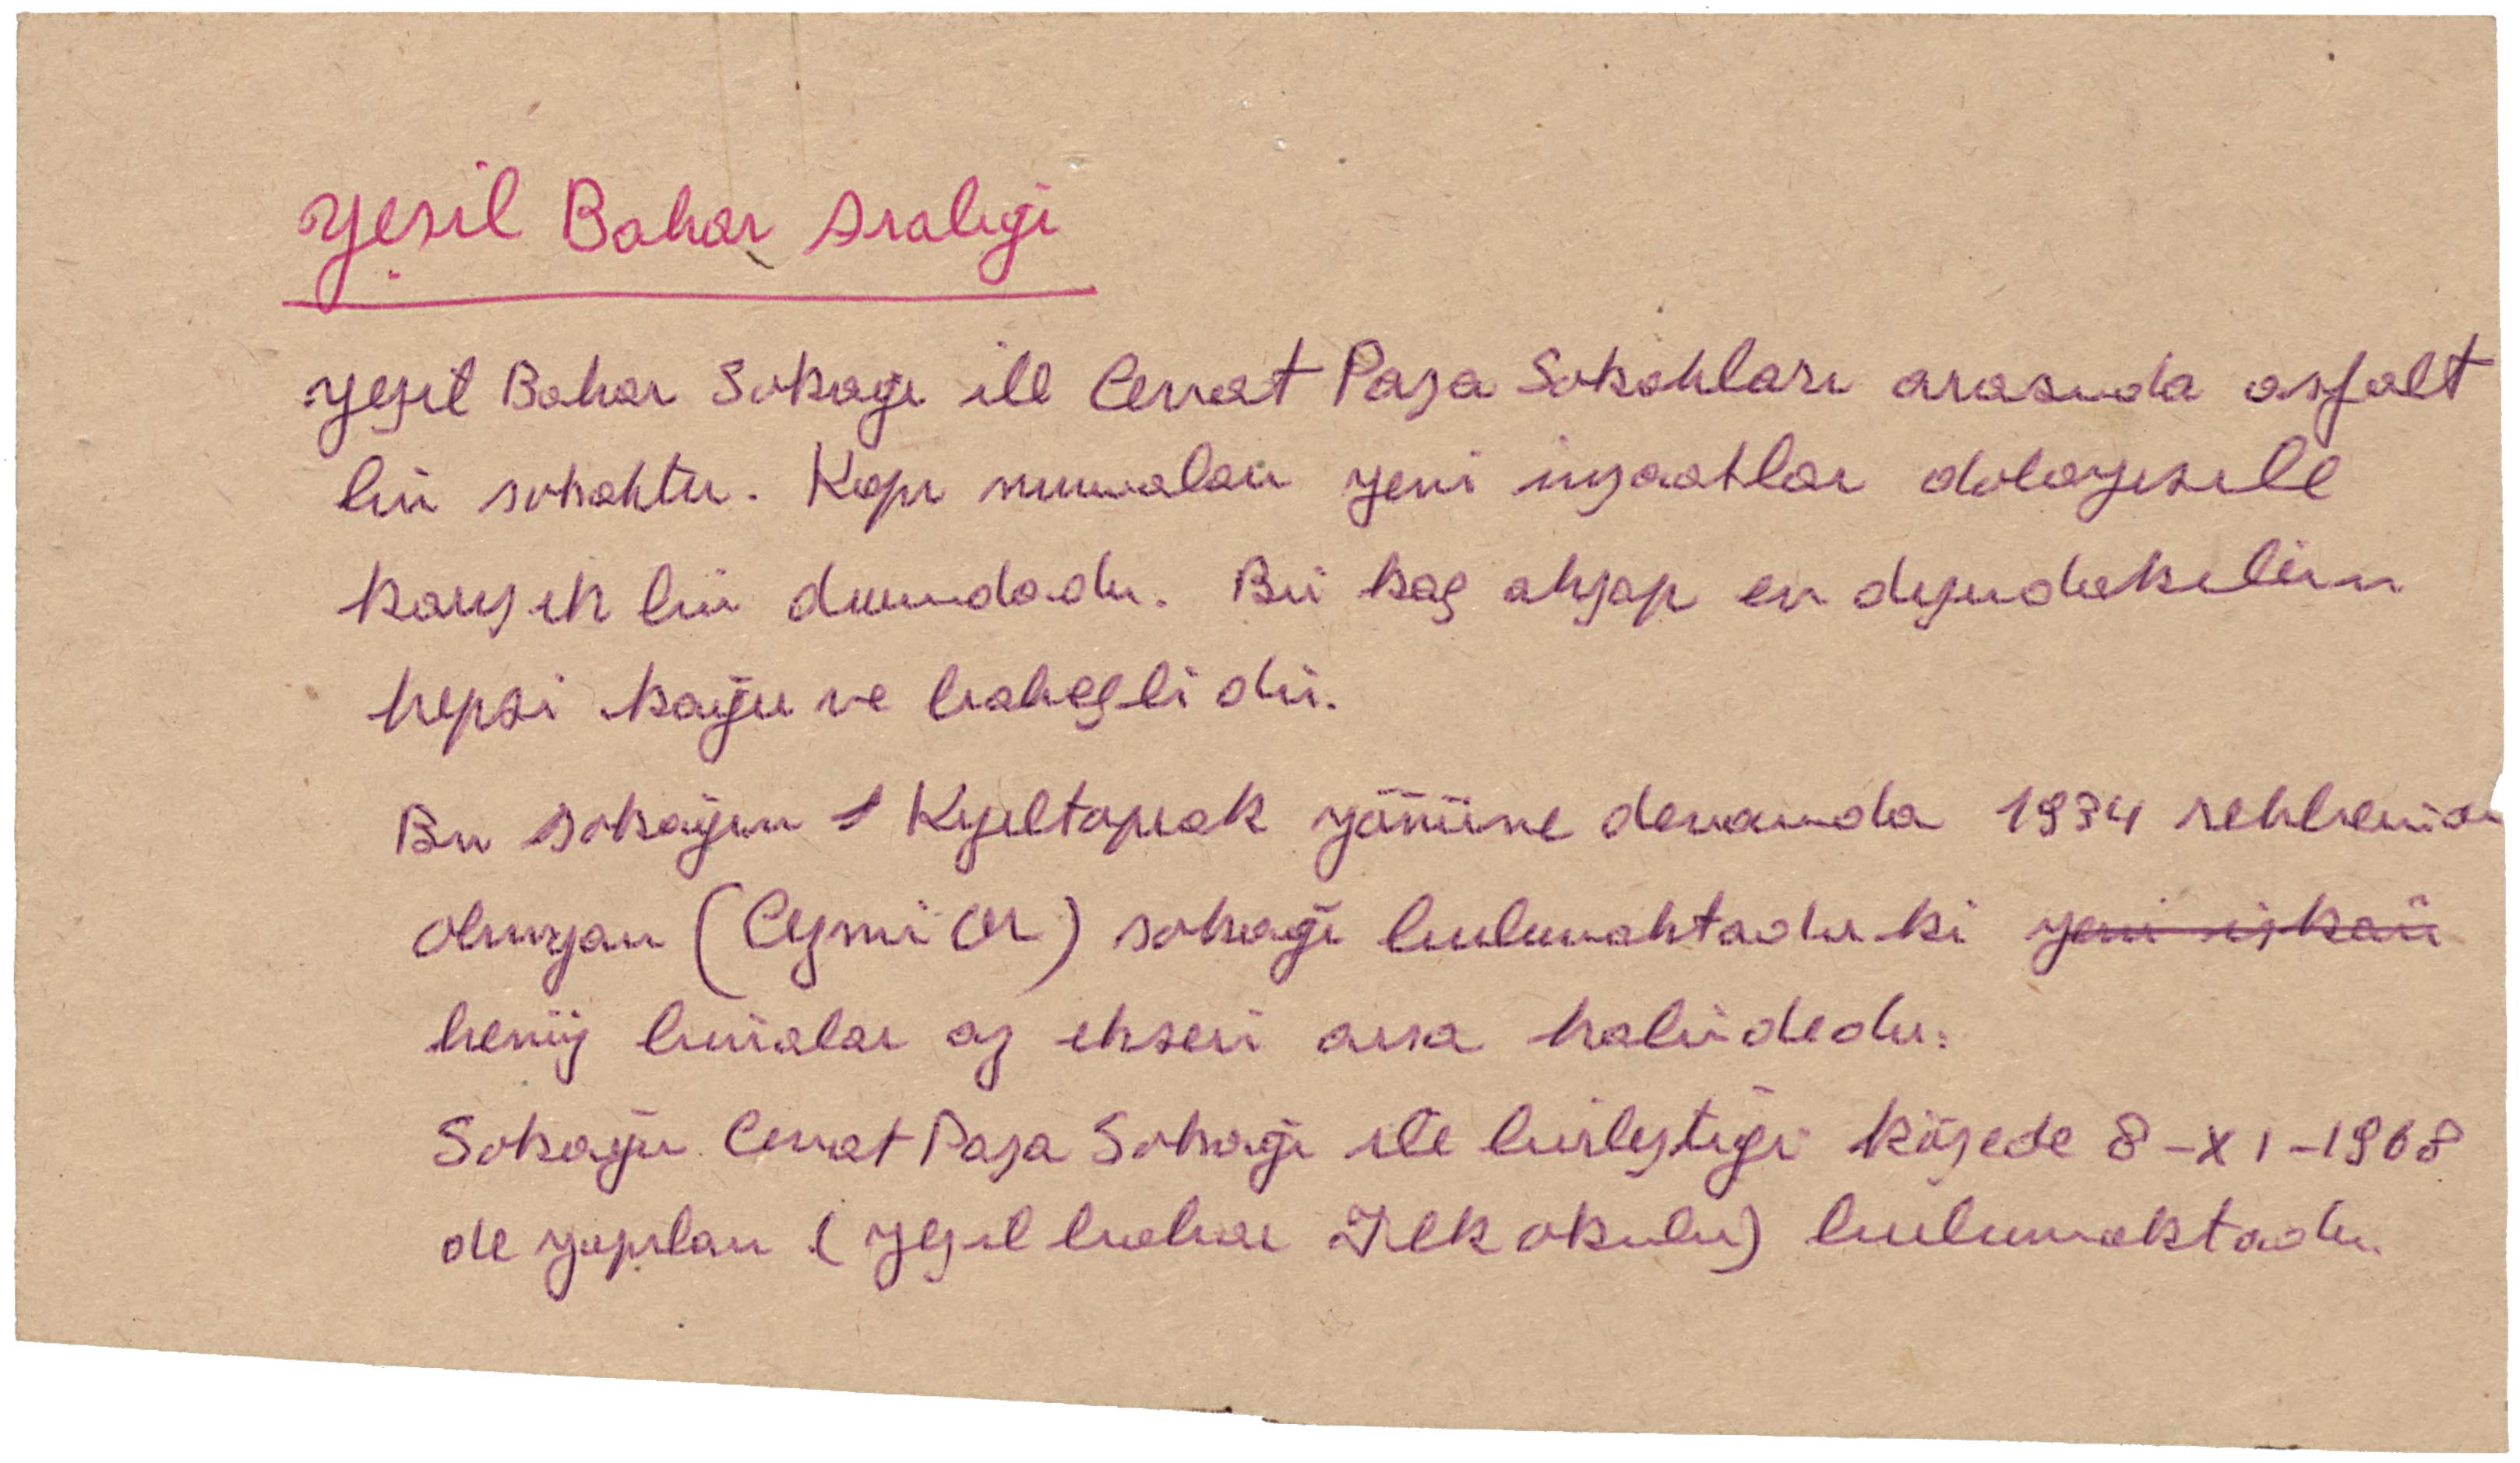 Yeşil Bahar Aralığı
Yeşil Bahar Sokağı ile Cevat Paşa Sokakları arasında asfalt
bir sokaktır. Kapı numaraları yeni inşaatlar dolayısile
karışık bir durumdadır. Bir kaç ahşap ev dışındakilerin
hepsi kagir ve bahçelidir.
Bu sokağın Kızıltoprak yönüne devamında 1934 rehberinde
olmıyan ( ) sokağı bulunmaktadır ki yeni iskan
henüz binalar az ekseri arsa halindedir.
Sokağın Cevat Paşa Sokağı ile birleştiği köşede 8-XI-1968
de yapılan (Yeşil bahar İlk okulu) bulunmaktadır.